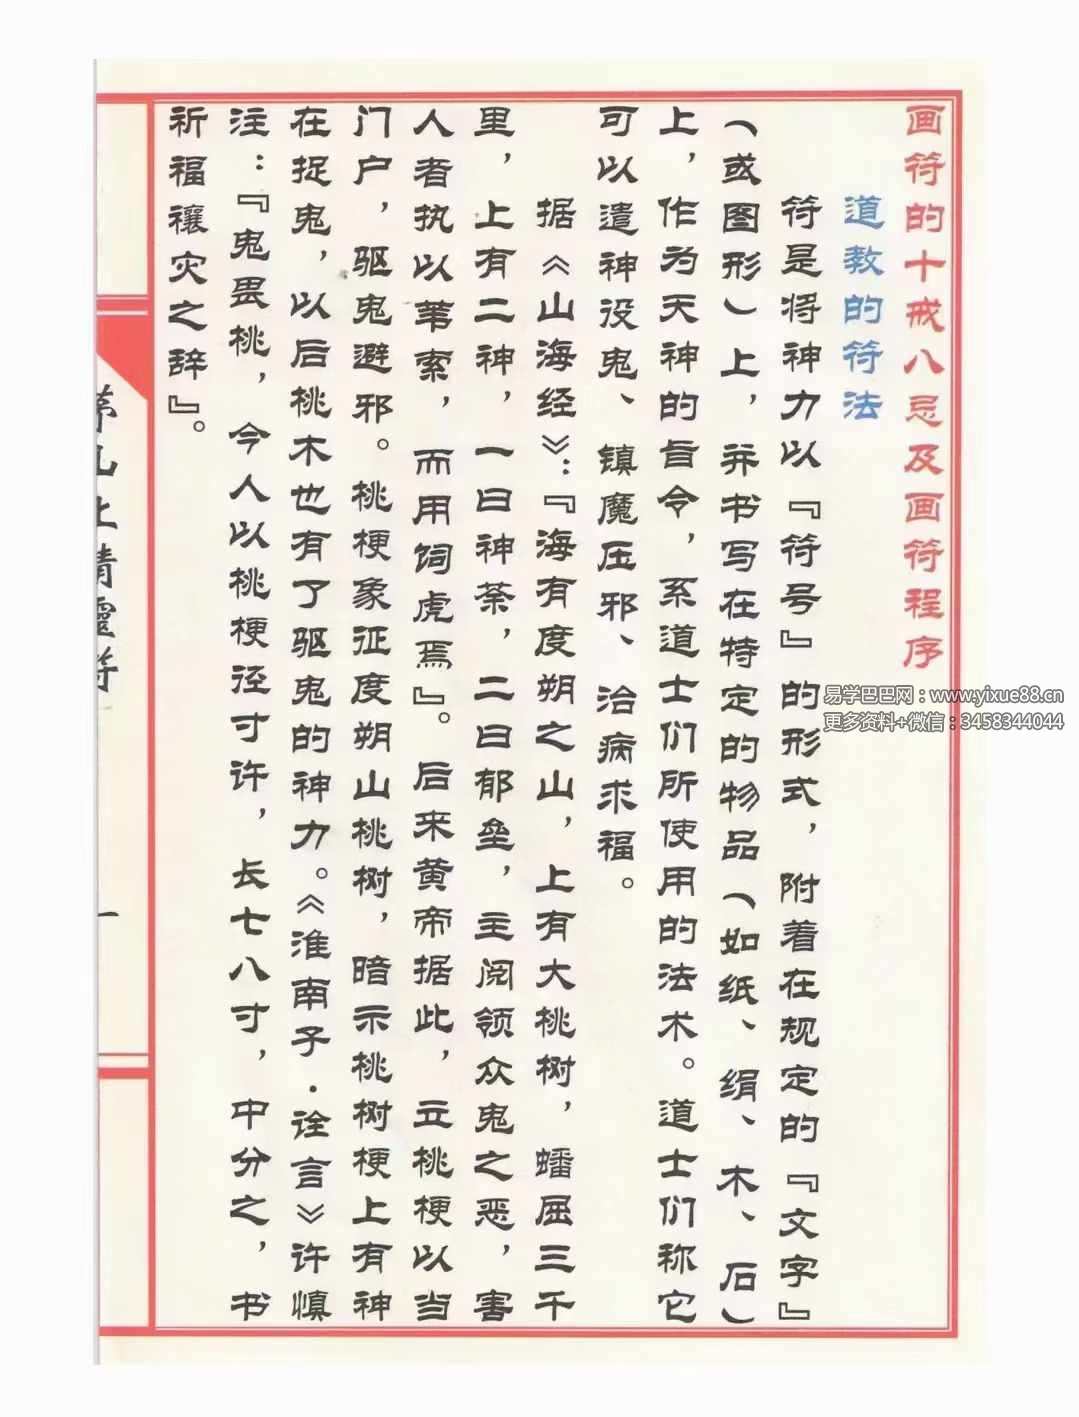 画符的十戒八忌及画符程序
道教的符法
符是将神力以『符号』的形式，附着在规定的『文字』
（或图形）上，并书写在特定的物品（如纸、绢、木、石）
上，作为天神的旨令，系道士们所使用的法术。道士们称它
可以遣神役鬼、镇魔压邪、治病求福。
据《山海经》：『海有度朔之山，上有大桃树，蟠屈三千
里，上有二神，一曰神荼，二曰郁垒，主阅领众鬼之恶，害
人者执以苇索，而用饲虎焉』。后来黄帝据此，立桃梗以当
门户，驱鬼避邪。桃梗象征度朔山桃树，暗示桃树梗上有神
在捉鬼，以后桃木也有了驱鬼的神力。《淮南子·诠言》许慎
注：『鬼畏桃，今人以桃梗径寸许，长七八寸，中分之，书
祈福禳灾之辞』。
茅山上清灵符
一
易学巴巴网：www.yixue88.cn
更多资料+微信：3458344044